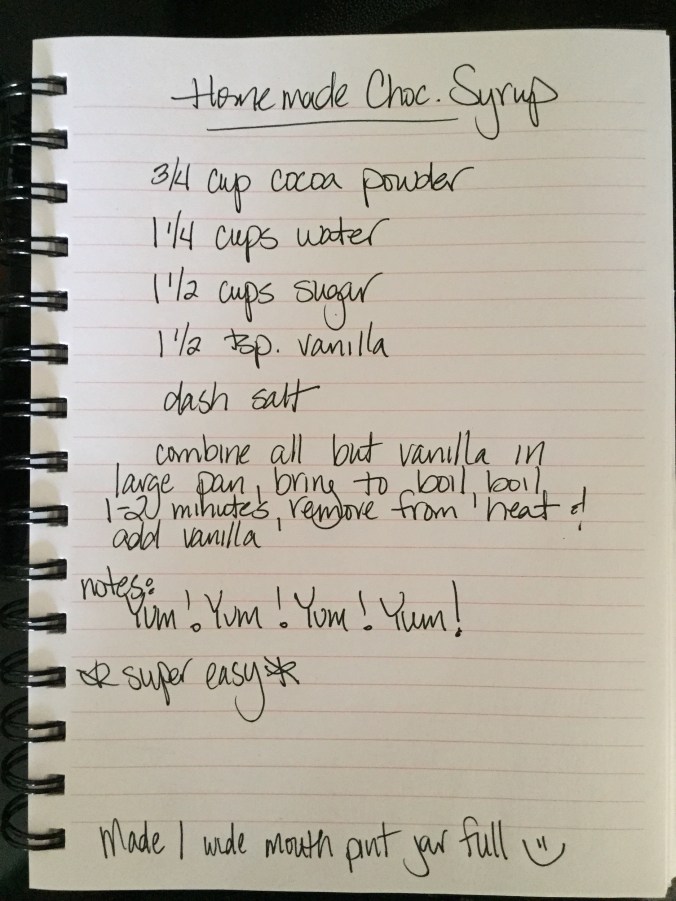 Homemade Choc. Syrup
3/4 cup cocoa powder
1 1/4 cups water
1 1/2 cups sugar
1 1/2 tsp. vanilla
dash salt
combine all but vanilla in
large pan, bring to boil, boil
1-2 minutes, remove from heat &
add vanilla
notes:
Yum! Yum! Yum! Yum!
* super easy *
Made 1 wide mouth pint jar full :)